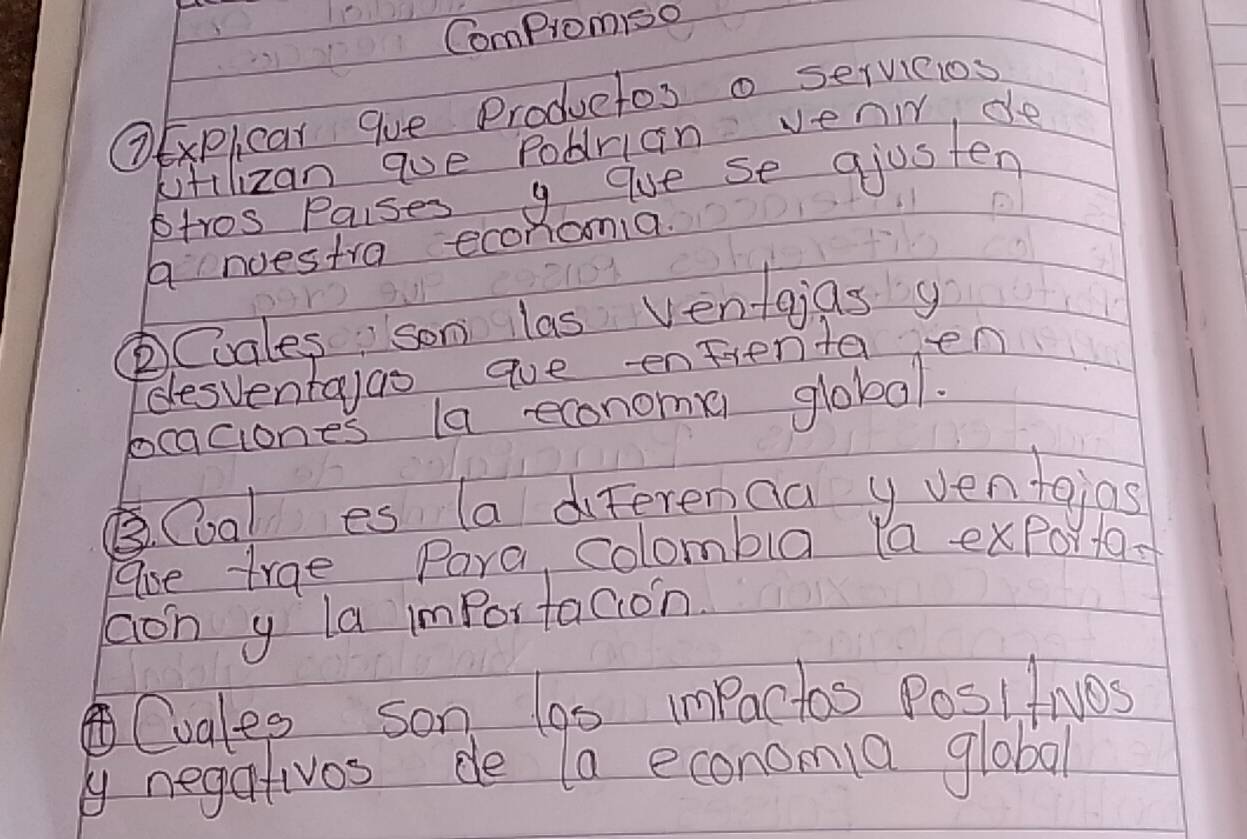 Compromiso
① Explicar que Productos o servicios
utilizan que Podrian venir, de
otros Paises y que se ajusten
a nuestra economia.
② Cuales son las ventajas y
desventajas que enfrenta en
ocaciones la economia global.
③. Cual es la diferencia y ventajas
que trae Para Colombia la exporta-
ción y la importación.
④ Cuales son los impactos Positivos
y negativos de la economia global